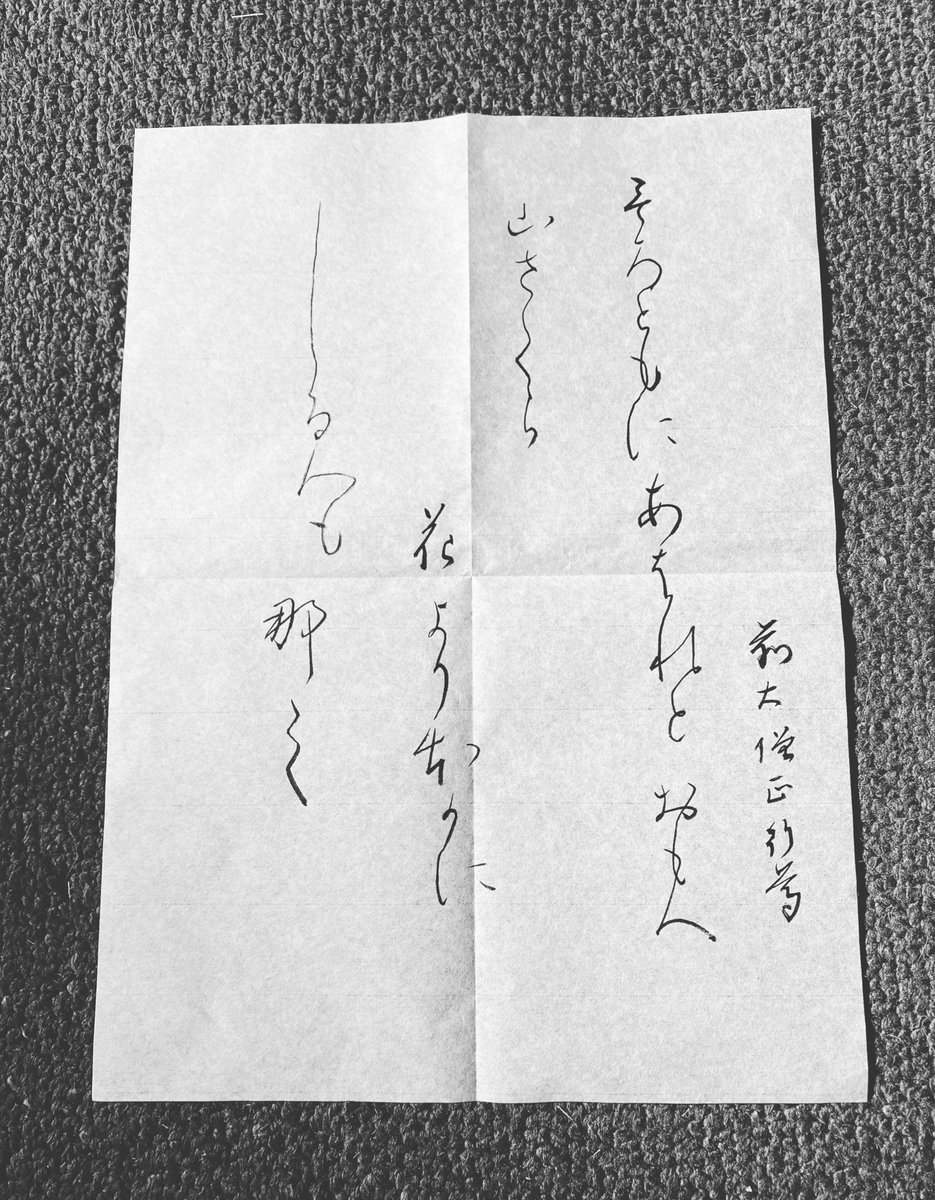 前大僧正行尊
もろともにあはれとおもへ
山さくら
花より本かに
しる人も那し